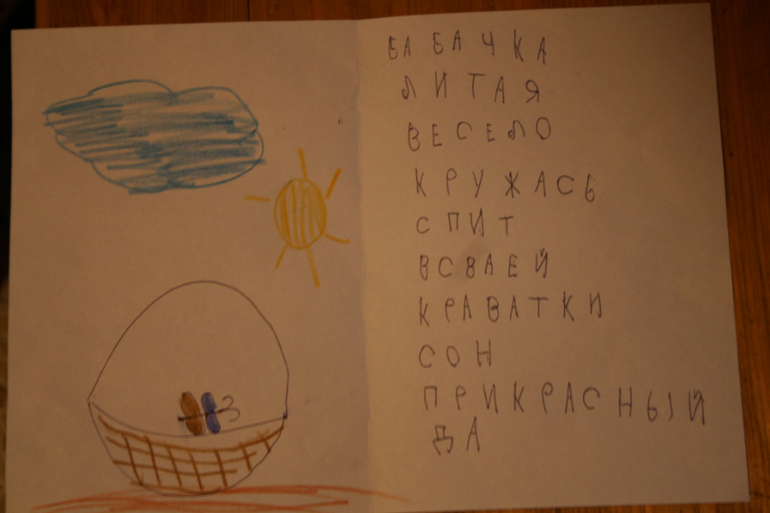 БАБАЧКА
ЛИТАЯ
ВЕСЕЛО
КРУЖАСЬ
СПИТ
ВСВАЕЙ
КРАВАТКИ
СОН
ПРИКРАСНЫЙ
ДА